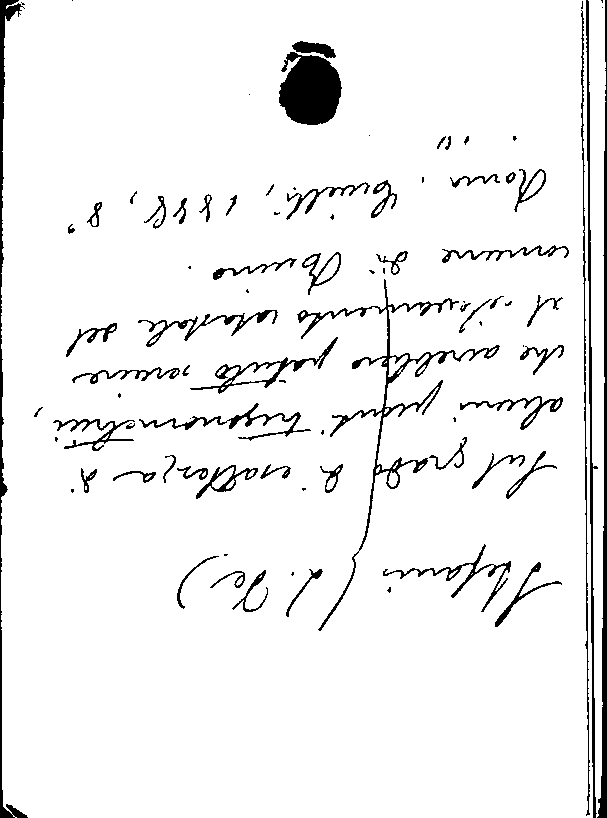 Stefanis (L. De)
Sul grado d'esattezza di
alcuni punti trigonometrici,
che avrebbero potuto servire
al rilevamento catastale del
comune di
Roma, Civelli, 1888, 8°